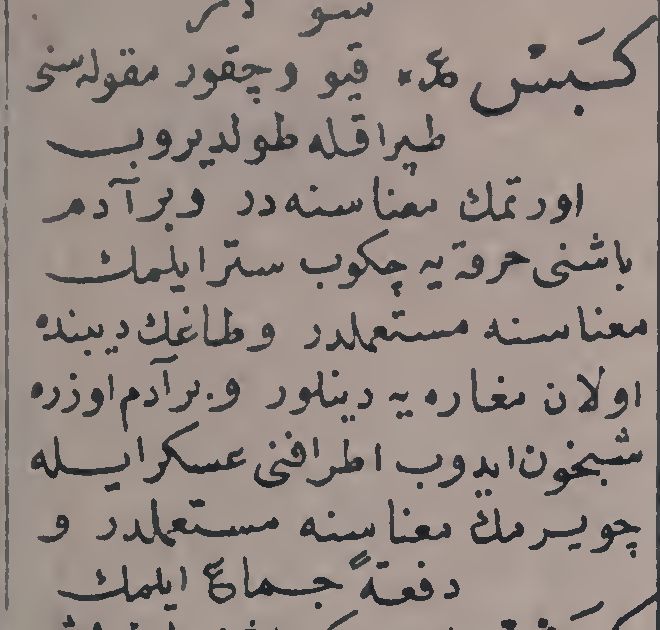 كبس ع‍ قيو وچقور مقوله‌سنى
طپراقله طولديروب
اورتمك معناسنه‌در وبر آدم
باشنى خرقه‌يه چكوب ستر ايلمك
معناسنه مستعملدر وطاغك ديبنده
اولان مغاره‌يه دينلور وبر آدم اوزره
شبخون ايدوب اطرافنى عسكر ايله
چويرمك معناسنه مستعملدر و
دفعةً جماع ايلمك